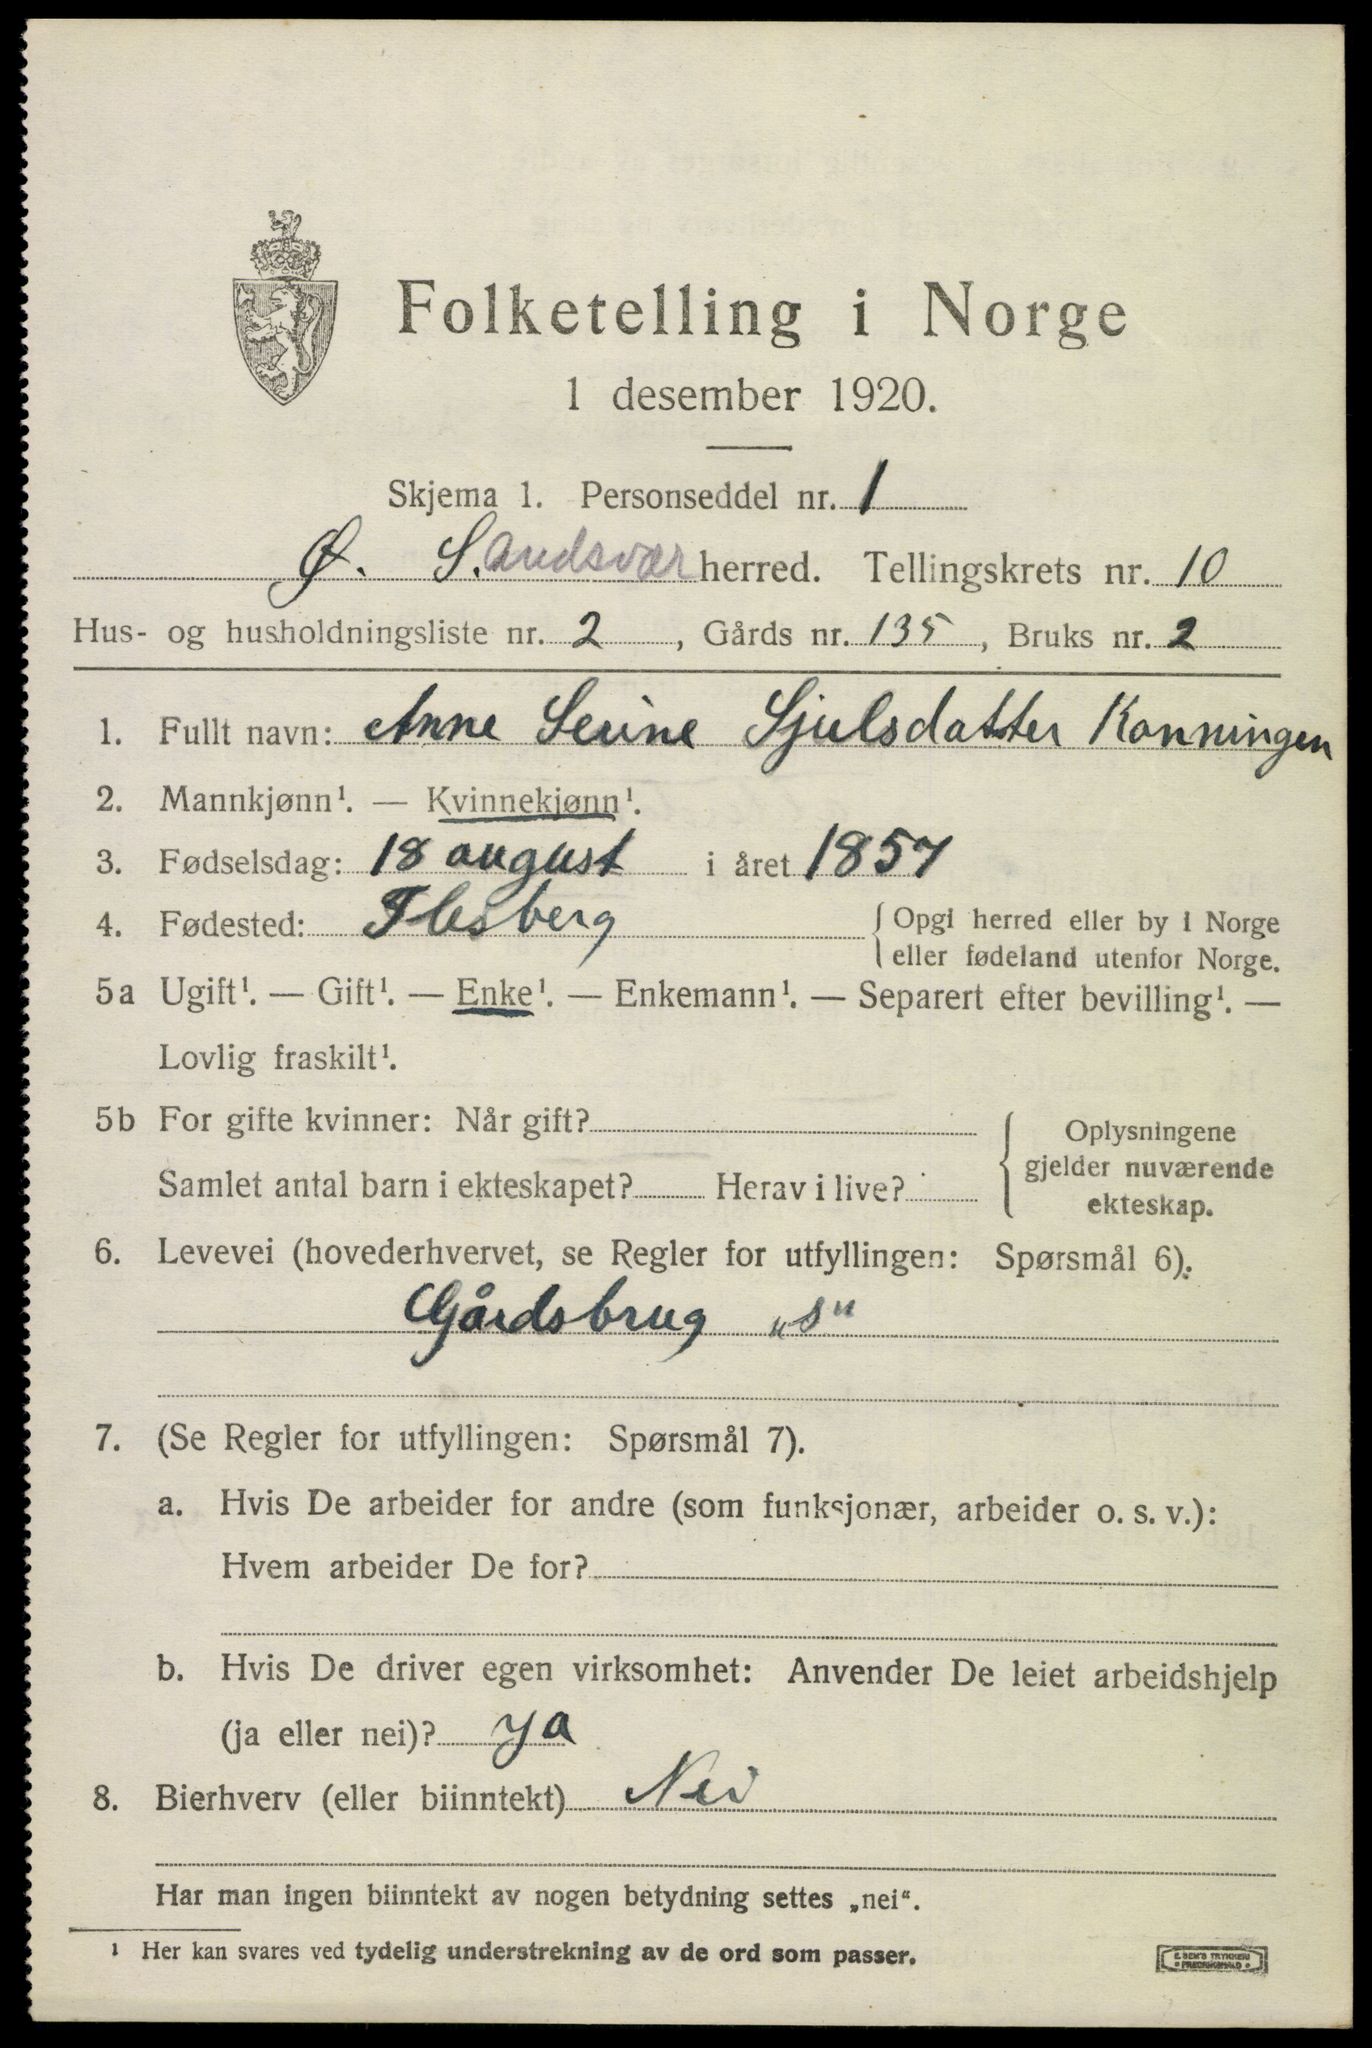 Folketelling i Norge
1 desember 1920.
Skjema 1. Personseddel nr. 1
Ø. S.andsvær herred. Tellingskrets nr. 10
Hus- og husholdningsliste nr. 2, Gårds nr. 135, Bruks nr. 2
1. Fullt navn: Anne Serine Sjulsdatter Konningen
2. Mannkjønn¹. — Kvinnekjønn¹.
3. Fødselsdag: 18 august i året 1857
4. Fødested: Flesberg { Opgi herred eller by i Norge
eller fødeland utenfor Norge.
5a Ugift¹. — Gift¹. — Enke¹. — Enkemann¹. — Separert efter bevilling¹. —
Lovlig fraskilt¹.
5b For gifte kvinner: Når gift?
Samlet antal barn i ekteskapet? Herav i live?
Oplysningene
gjelder nuværende
ekteskap.
6. Levevei (hovederhvervet, se Regler for utfyllingen: Spørsmål 6).
Gårdsbrug „s“
7. (Se Regler for utfyllingen: Spørsmål 7).
a. Hvis De arbeider for andre (som funksjonær, arbeider o. s. v.):
Hvem arbeider De for?
b. Hvis De driver egen virksomhet: Anvender De leiet arbeidshjelp
(ja eller nei)? ja
8. Bierhverv (eller biinntekt) Nei
Har man ingen biinntekt av nogen betydning settes „nei“.
¹ Her kan svares ved tydelig understrekning av de ord som passer.
E. SEM'S TRYKKERI
FREDRIKSHALD